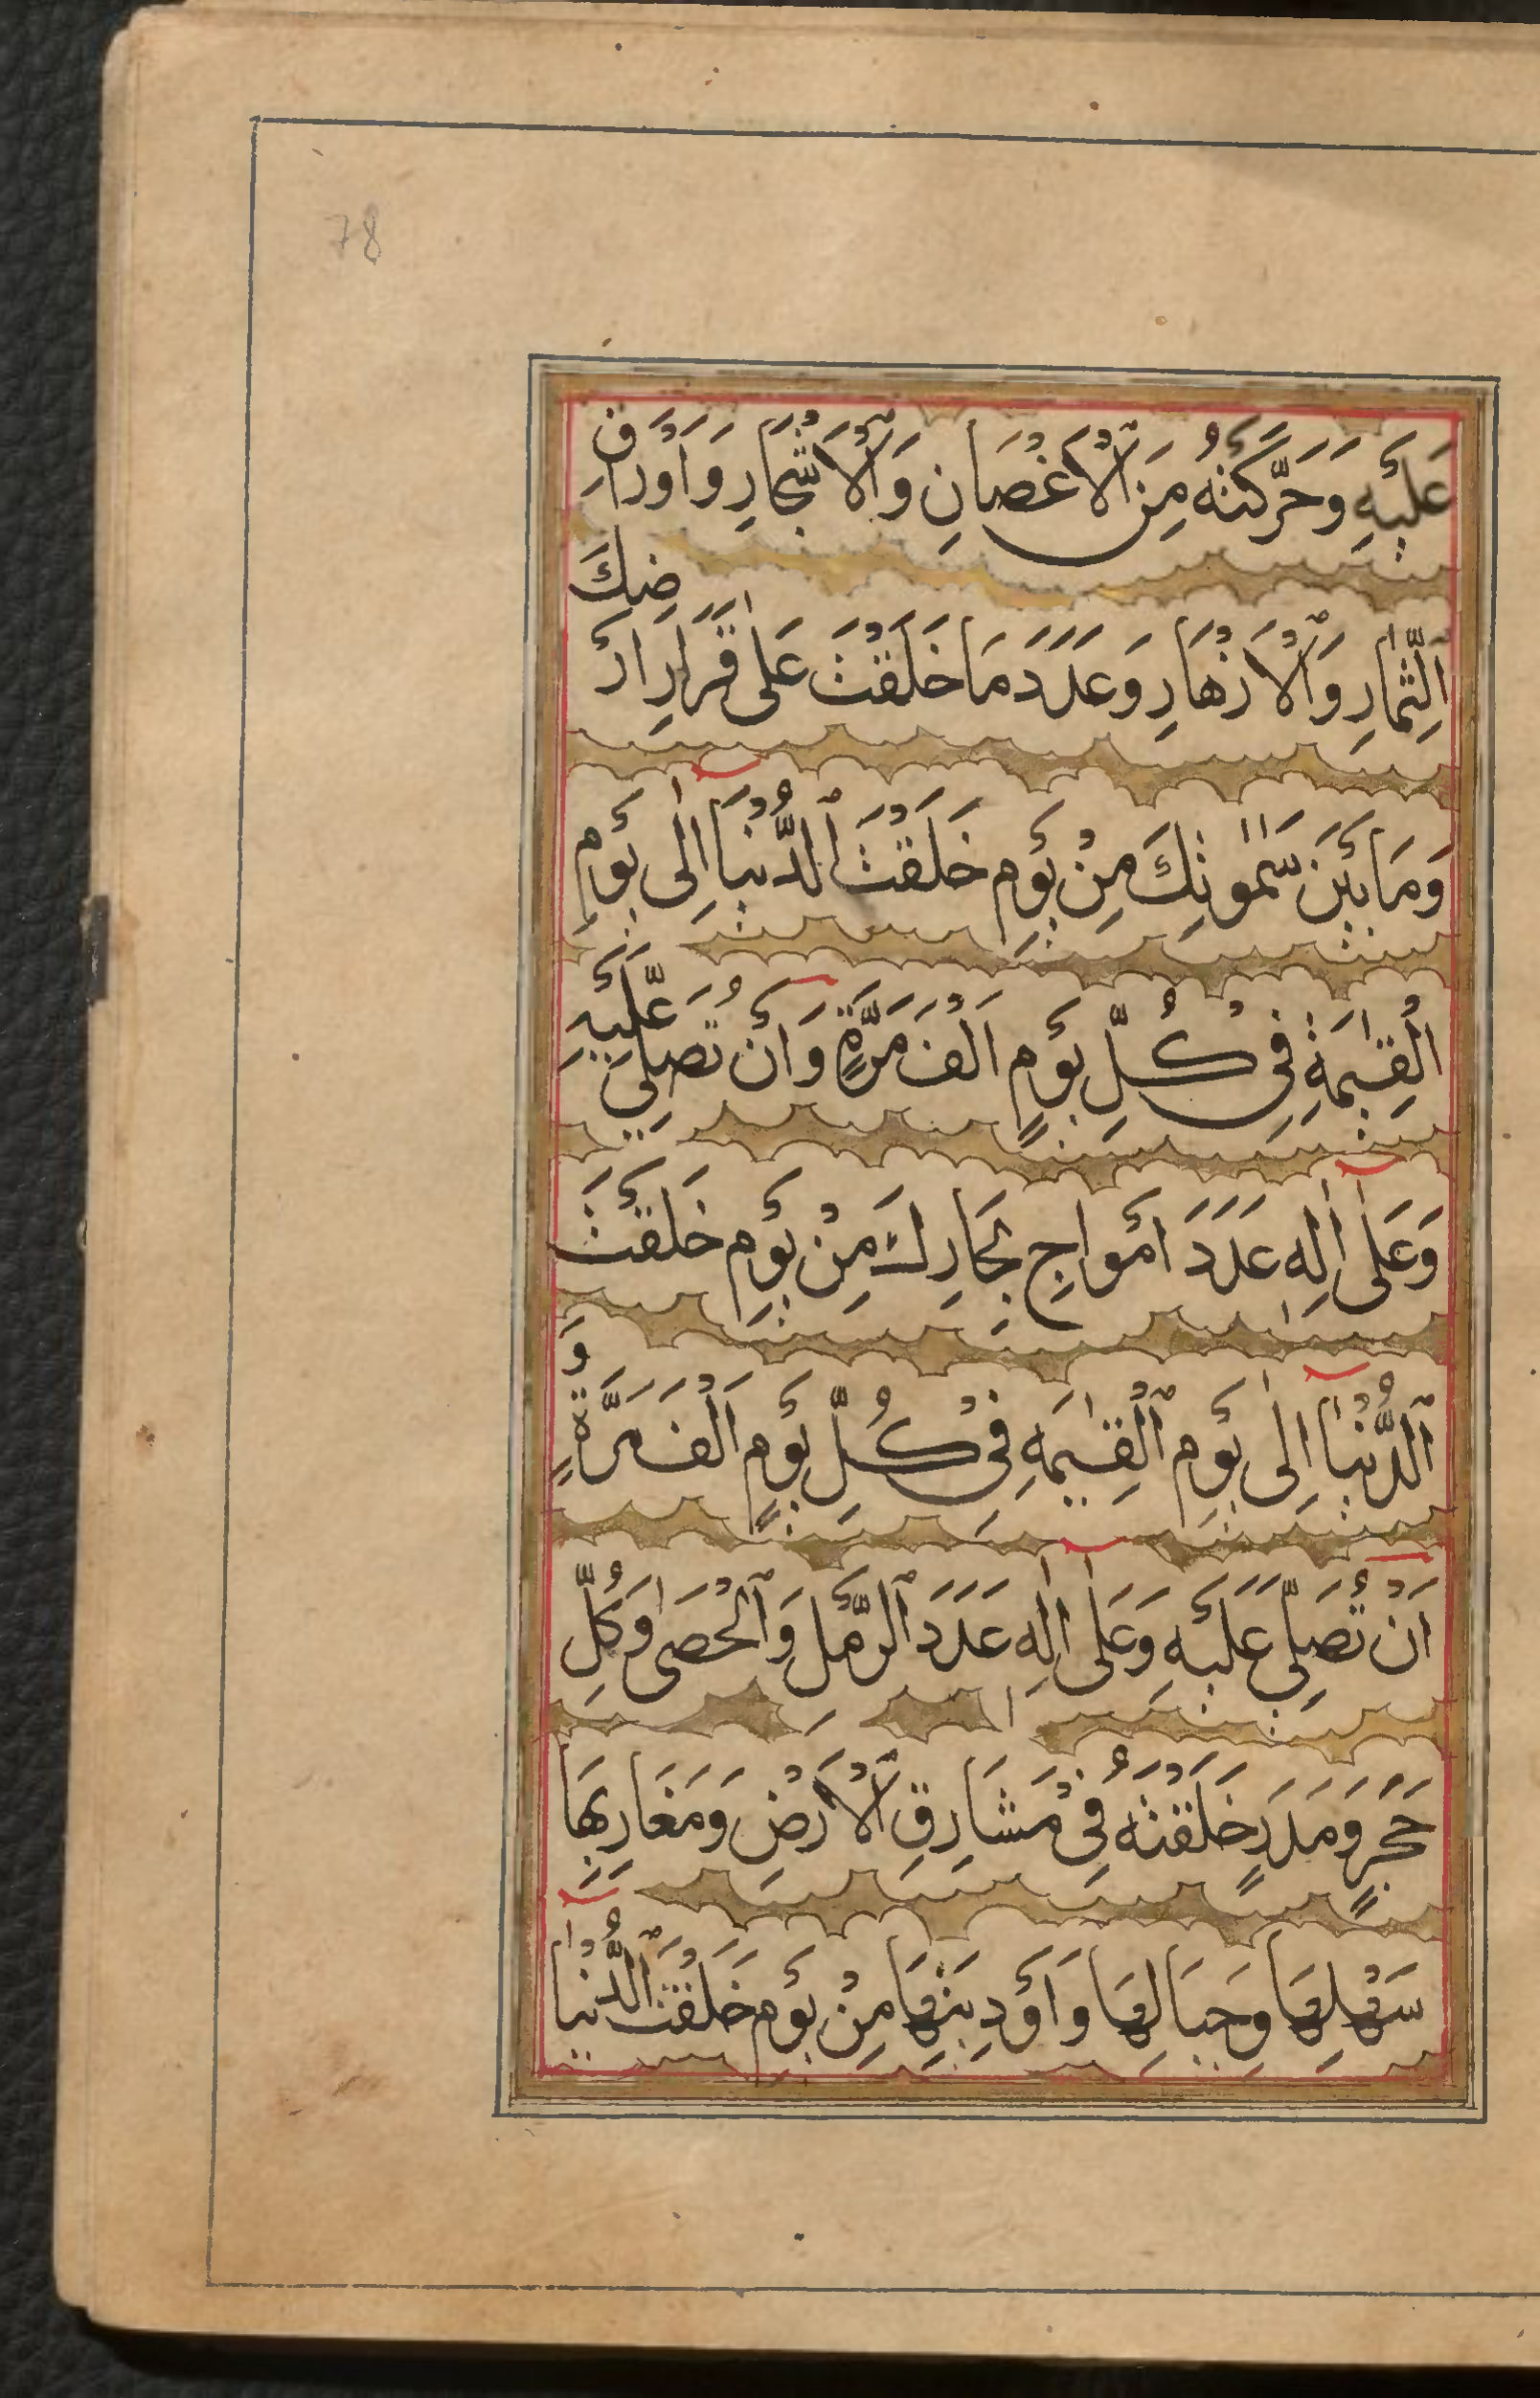 78
عَلَيْهِ وَحَرَّكَتْهُ مِنَ الْاَغْصَانِ وَالْاَشْجَارِ وَاَوْرَاقِ
الثِّمَارِ وَالْاَزْهَارِ وَعَدَدَ مَا خَلَقْتَ عَلٰى قَرَارِ اَرْضِكَ
وَمَا بَيْنَ سَمٰوٰتِكَ مِنْ يَوْمِ خَلَقْتَ الدُّنْيَا اِلٰى يَوْمِ
الْقِيٰمَةِ فِىْ كُلِّ يَوْمٍ اَلْفَ مَرَّةٍ وَاَنْ تُصَلِّىَ عَلَيْهِ
وَعَلٰى اٰلِهٖ عَدَدَ اَمْوَاجِ بِحَارِكَ مِنْ يَوْمِ خَلَقْتَ
الدُّنْيَا اِلٰى يَوْمِ الْقِيٰمَةِ فِىْ كُلِّ يَوْمٍ اَلْفَ مَرَّةٍ وَ
اَنْ تُصَلِّىَ عَلَيْهِ وَعَلٰى اٰلِهٖ عَدَدَ الرَّمْلِ وَالْحَصٰى وَكُلِّ
حَجَرٍ وَمَدَرٍ خَلَقْتَهُ فِىْ مَشَارِقِ الْاَرْضِ وَمَغَارِبِهَا
سَهْلِهَا وَجِبَالِهَا وَاَوْدِيَتِهَا مِنْ يَوْمِ خَلَقْتَ الدُّنْيَا